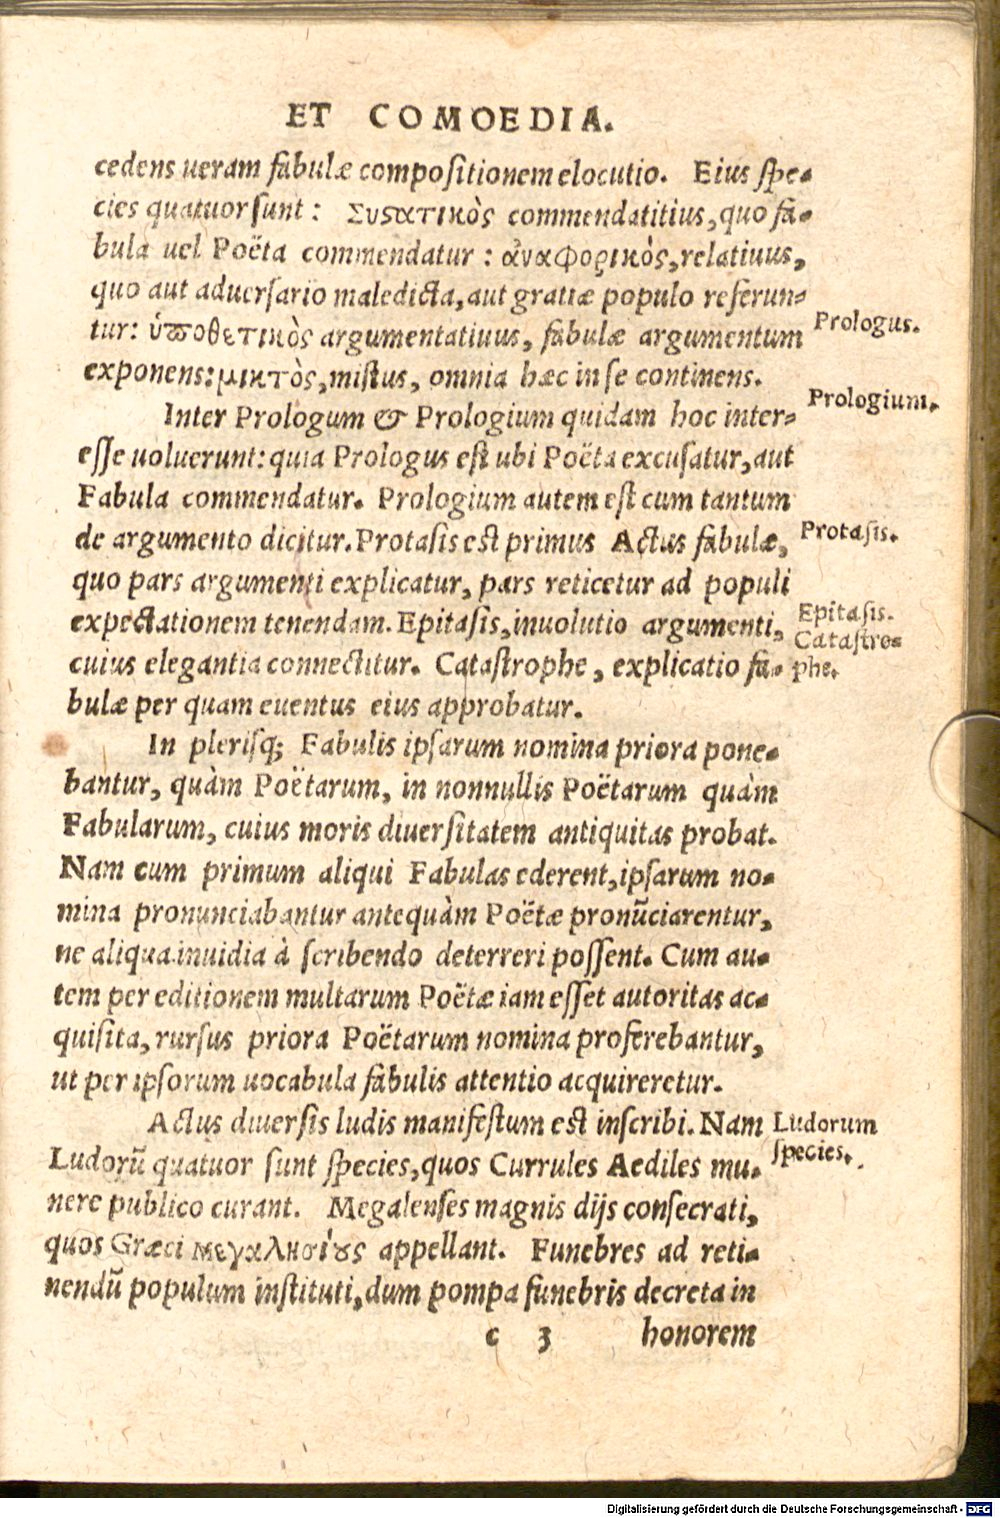 ET COMOEDIA.
cedens ueram fabulæ compositionem elocutio. Eius spe-
cies quatuor sunt: Συςατικὸς commendatitius, quo fa-
bula uel Poëta commendatur: ἀναφορικὸς, relatiuus,
quo aut aduersario maledicta, aut gratiæ populo referun-
tur: ὑποθετικὸς argumentatiuus, fabulæ argumentum
Prologus.
exponens: μικτὸς, mistus, omnia hæc in se continens.
Prologium.
Inter Prologum & Prologium quidam hoc inter-
esse uoluerunt: quia Prologus est ubi Poëta excusatur, aut
Fabula commendatur. Prologium autem est cum tantum
de argumento dicitur. Protasis est primus Actus fabulæ,
Protasis.
quo pars argumenti explicatur, pars reticetur ad populi
expectationem tenendam. Epitasis, inuolutio argumenti,
Epitasis.
cuius elegantia connectitur. Catastrophe, explicatio fa-
Catastro-
phe.
bulæ per quam euentus eius approbatur.
In plerisq; Fabulis ipsarum nomina priora pone-
bantur, quàm Poëtarum, in nonnullis Poëtarum quàm
Fabularum, cuius moris diuersitatem antiquitas probat.
Nam cum primum aliqui Fabulas ederent, ipsarum no-
mina pronunciabantur antequàm Poëtæ pronũciarentur,
ne aliqua inuidia à scribendo deterreri possent. Cum au-
tem per editionem multarum Poëtæ iam esset autoritas ac-
quisita, rursus priora Poëtarum nomina proferebantur,
ut per ipsorum uocabula fabulis attentio acquireretur.
Actus diuersis ludis manifestum est inscribi. Nam
Ludorum
species.
Ludorũ quatuor sunt species, quos Currules Aediles mu-
nere publico curant. Megalenses magnis dijs consecrati,
quos Græci μεγαλησίȣς appellant. Funebres ad reti-
nendũ populum instituti, dum pompa funebris decreta in
c 3 honorem
Digitalisierung gefördert durch die Deutsche Forschungsgemeinschaft - DFG